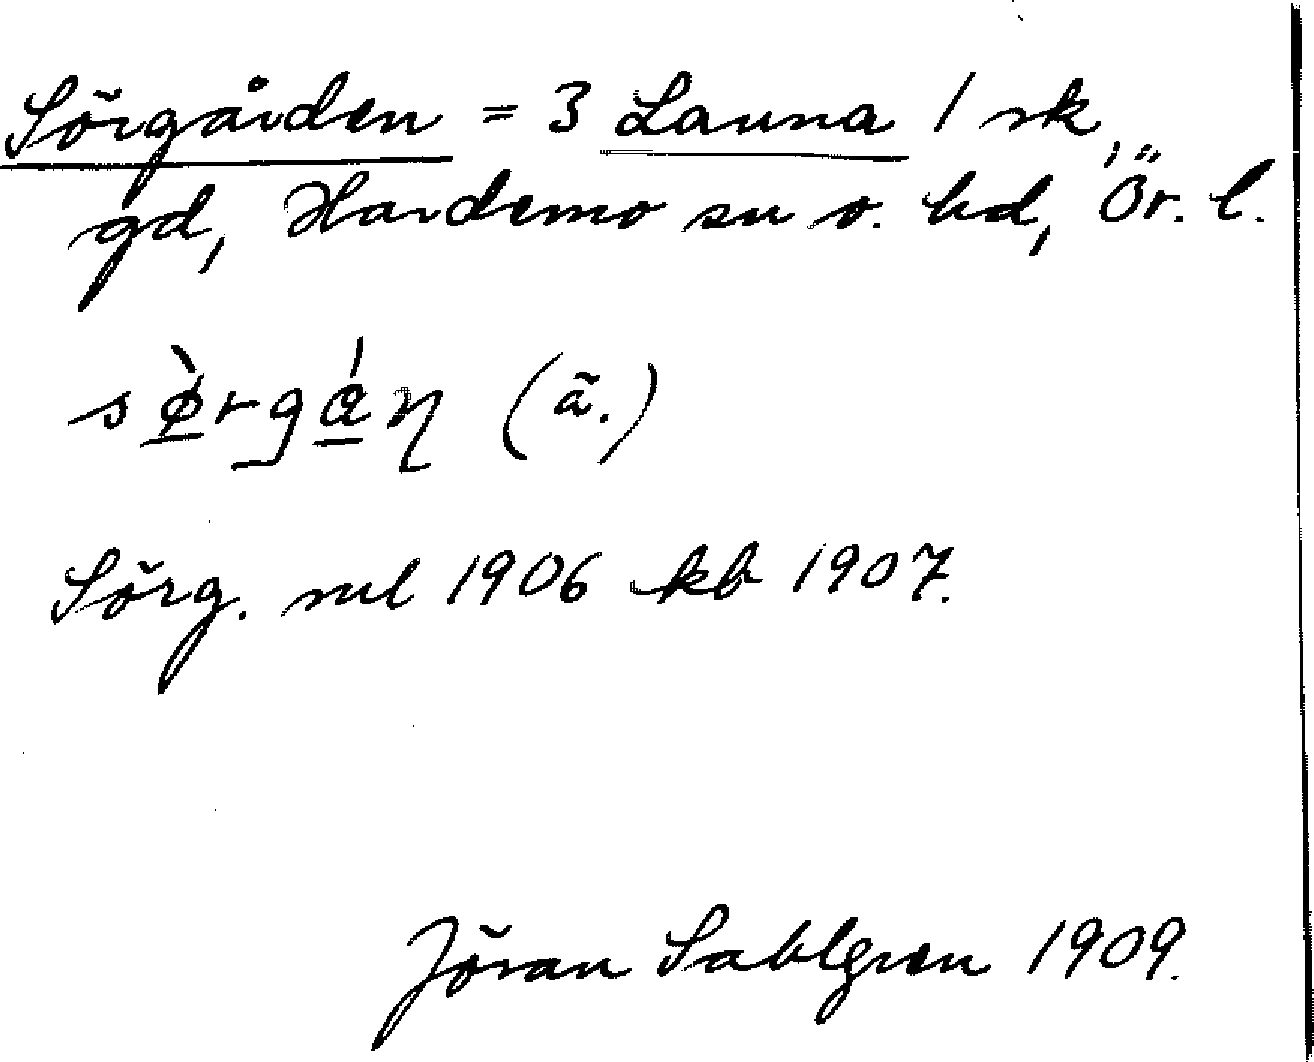 Sörgården = 3 Launa 1 sk,
gd, Hardemo sn o. hd, Ör. l.
sø̀rgán (ã.)
Sörg. ml 1906 kb 1907.
Jöran Sahlgren 1909.